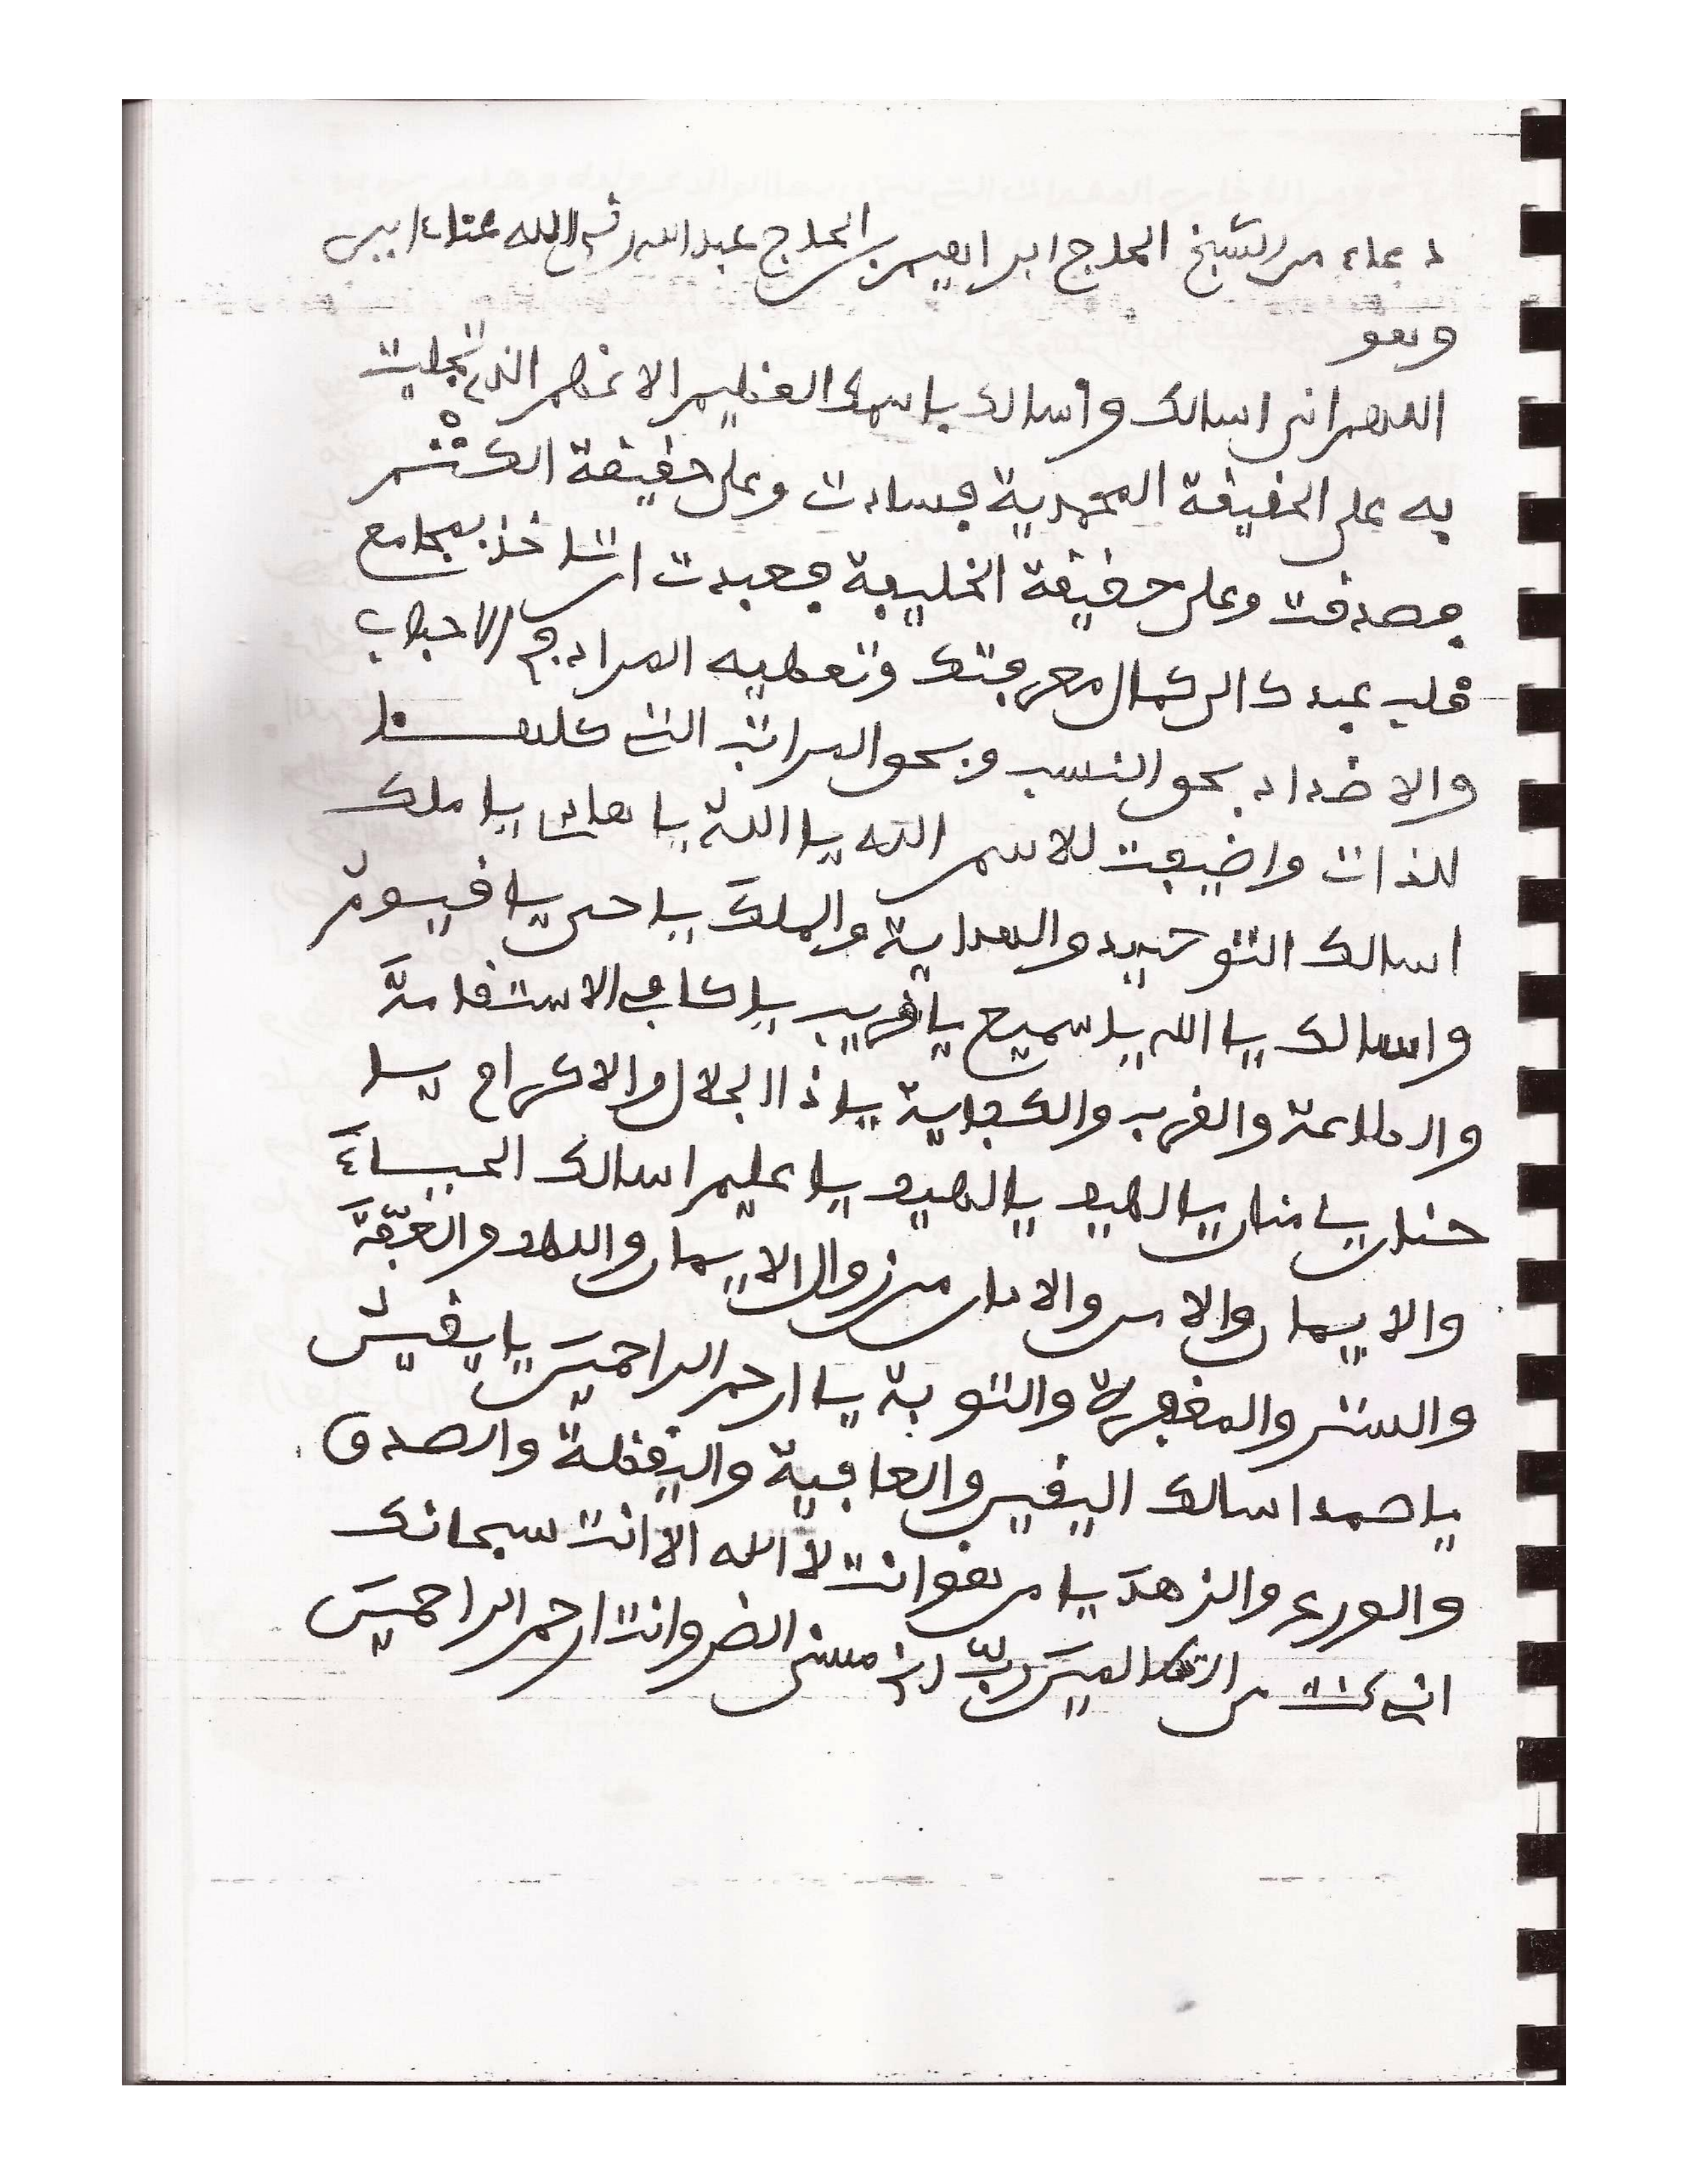 دعاء من الشيخ الحاج ابراهيم بن الحاج عبد الله رضي الله عنا ءامين
وهو
اللهم اني اسالك واسالك باسمك العظيم الاعظم الذي تجليت
به على الحقيقة المحمدية فسادت وعلى حقيقة الكتم
فصدقت وعلى حقيقة الخليفة فعبدت ان تاخذ بمجامع
قلب عبدك الى كمال معرفتك وتعطيه المراد في الاحباب
والاضداد بحق النسب وبحق المراتب التي كلها
للذات واضيفت للاسم الله يا الله يا هادي يا ملك
اسالك التوحيد والهداية والملك يا حي يا قيوم
واسالك يا الله يا سميع يا قريب يا كافي الاستقامة
والطاعة والقرب والكفاية يا ذا الجلال والاكرام يا
حنان يا منان يا لطيف يا لطيف يا عليم اسالك الحياء
والايمان والامن والامان من زوال الايمان واللطف والعفة
والستر والمغفرة والتوبة يا ارحم الراحمين يا يقين
يا صمد اسالك اليقين والعافية واليقظة والصدق
والورع والزهد يا من هو انت لا اله الا انت سبحانك
اني كنت من الظالمين رب اني مسني الضر وانت ارحم الراحمين